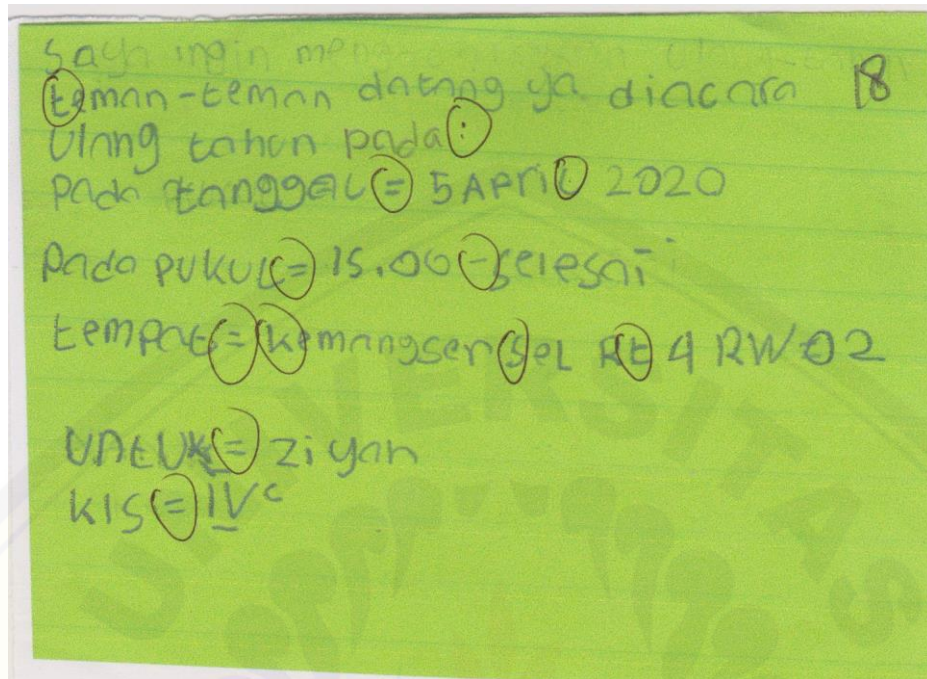 Saya ingin
teman-teman datang ya diacara 18
Ulang tahun pada :
Pada tanggal = 5 April 2020
Pada pukul = 15.00 - selesai
tempat = kemangsen sel Rt 4 RW 02
Untuk = ziyan
Kls = IV c
UNIVERSITAS